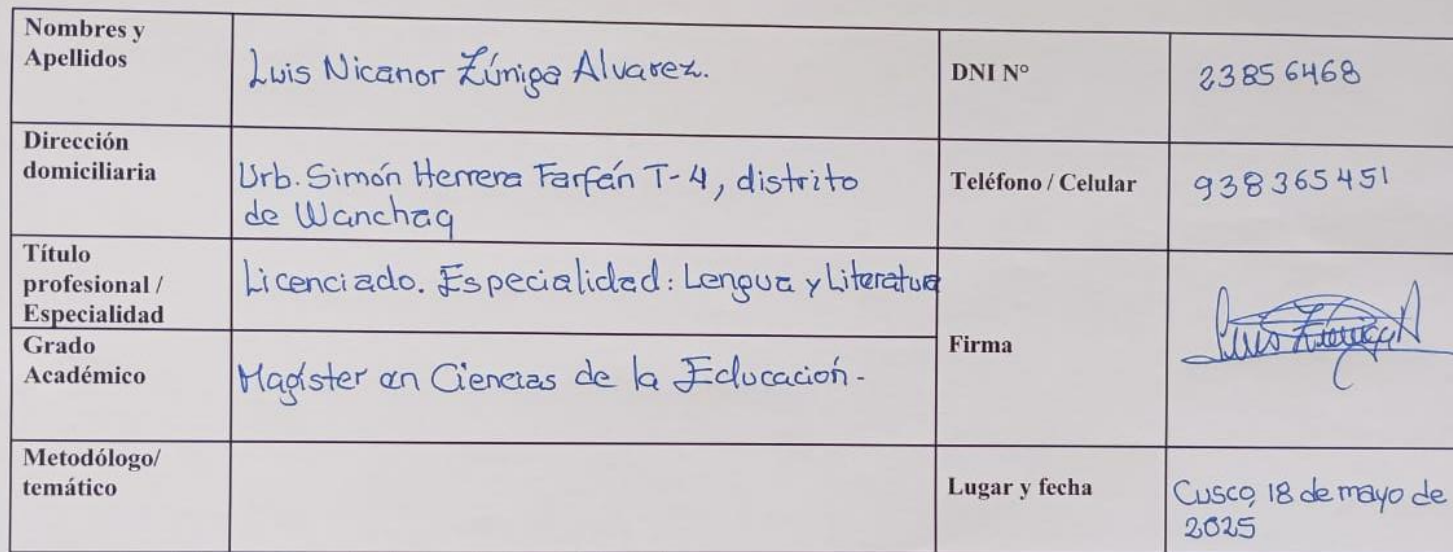 Nombres y
Apellidos
Luis Nicanor Zúniga Alvarez.
DNI N°
23856468
Dirección
domiciliaria
Urb. Simón Herrera Farfán T-4, distrito
de Wanchaq
Teléfono / Celular
938365451
Título
profesional /
Especialidad
Licenciado. Especialidad: Lengua y Literatura
Grado
Académico
Magíster en Ciencias de la Educación.
Firma
Luis Zuniga A
Metodólogo/
temático
Lugar y fecha
Cusco, 18 de mayo de
2025